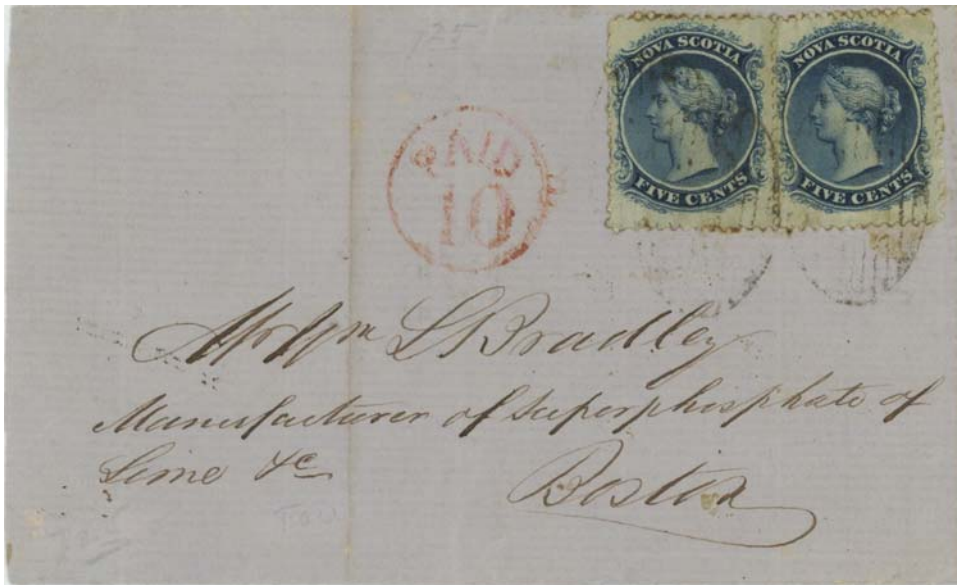 NOVA SCOTIA
FIVE CENTS
NOVA SCOTIA
FIVE CENTS
PAID
10
Mr Wm L Bradley
Manufacturer of Superphosphate of
Lime &c
Boston